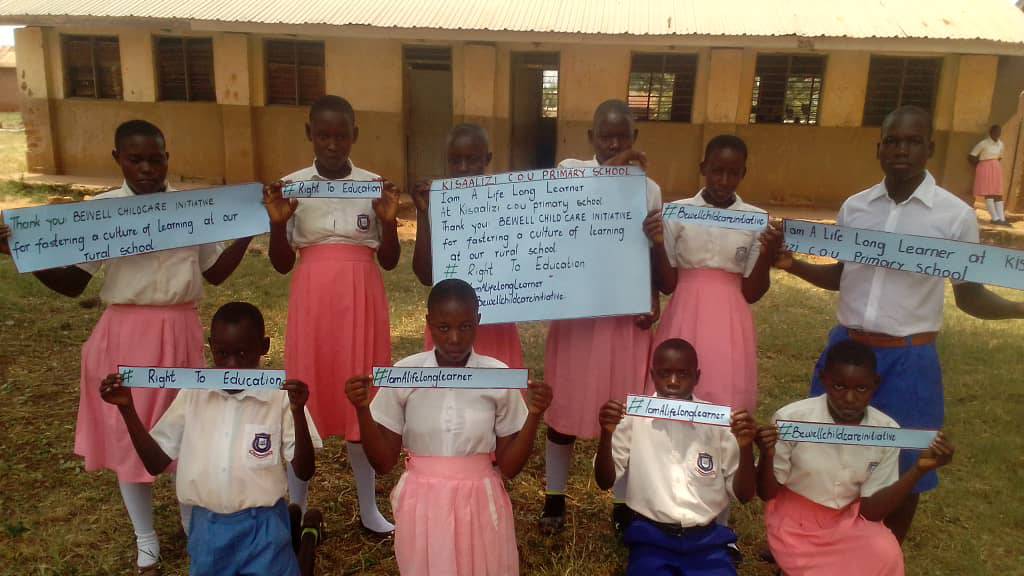 Thank you BEWELL CHILDCARE INITIATIVE
for fastering a culture of learning at our
rural school
# Right To Education
KISAALIZI C.O.U PRIMARY SCHOOL
Iam A Life Long Learner
At Kisaalizi c.o.u primary school
Thank you BEWELL CHILD CARE INITIATIVE
for fastering a culture of learning
at our rural school
# Right To Education
IamAlifelonglearner
Bewellchildcareinitiative
#Bewellchildcareinitiative
Iam A Life Long Learner at KIS
ZI C.O.U Primary school
# Right To Education
#IamAlifelonglearner
#IamAlifelonglearner
#Bewellchildcareinitiative